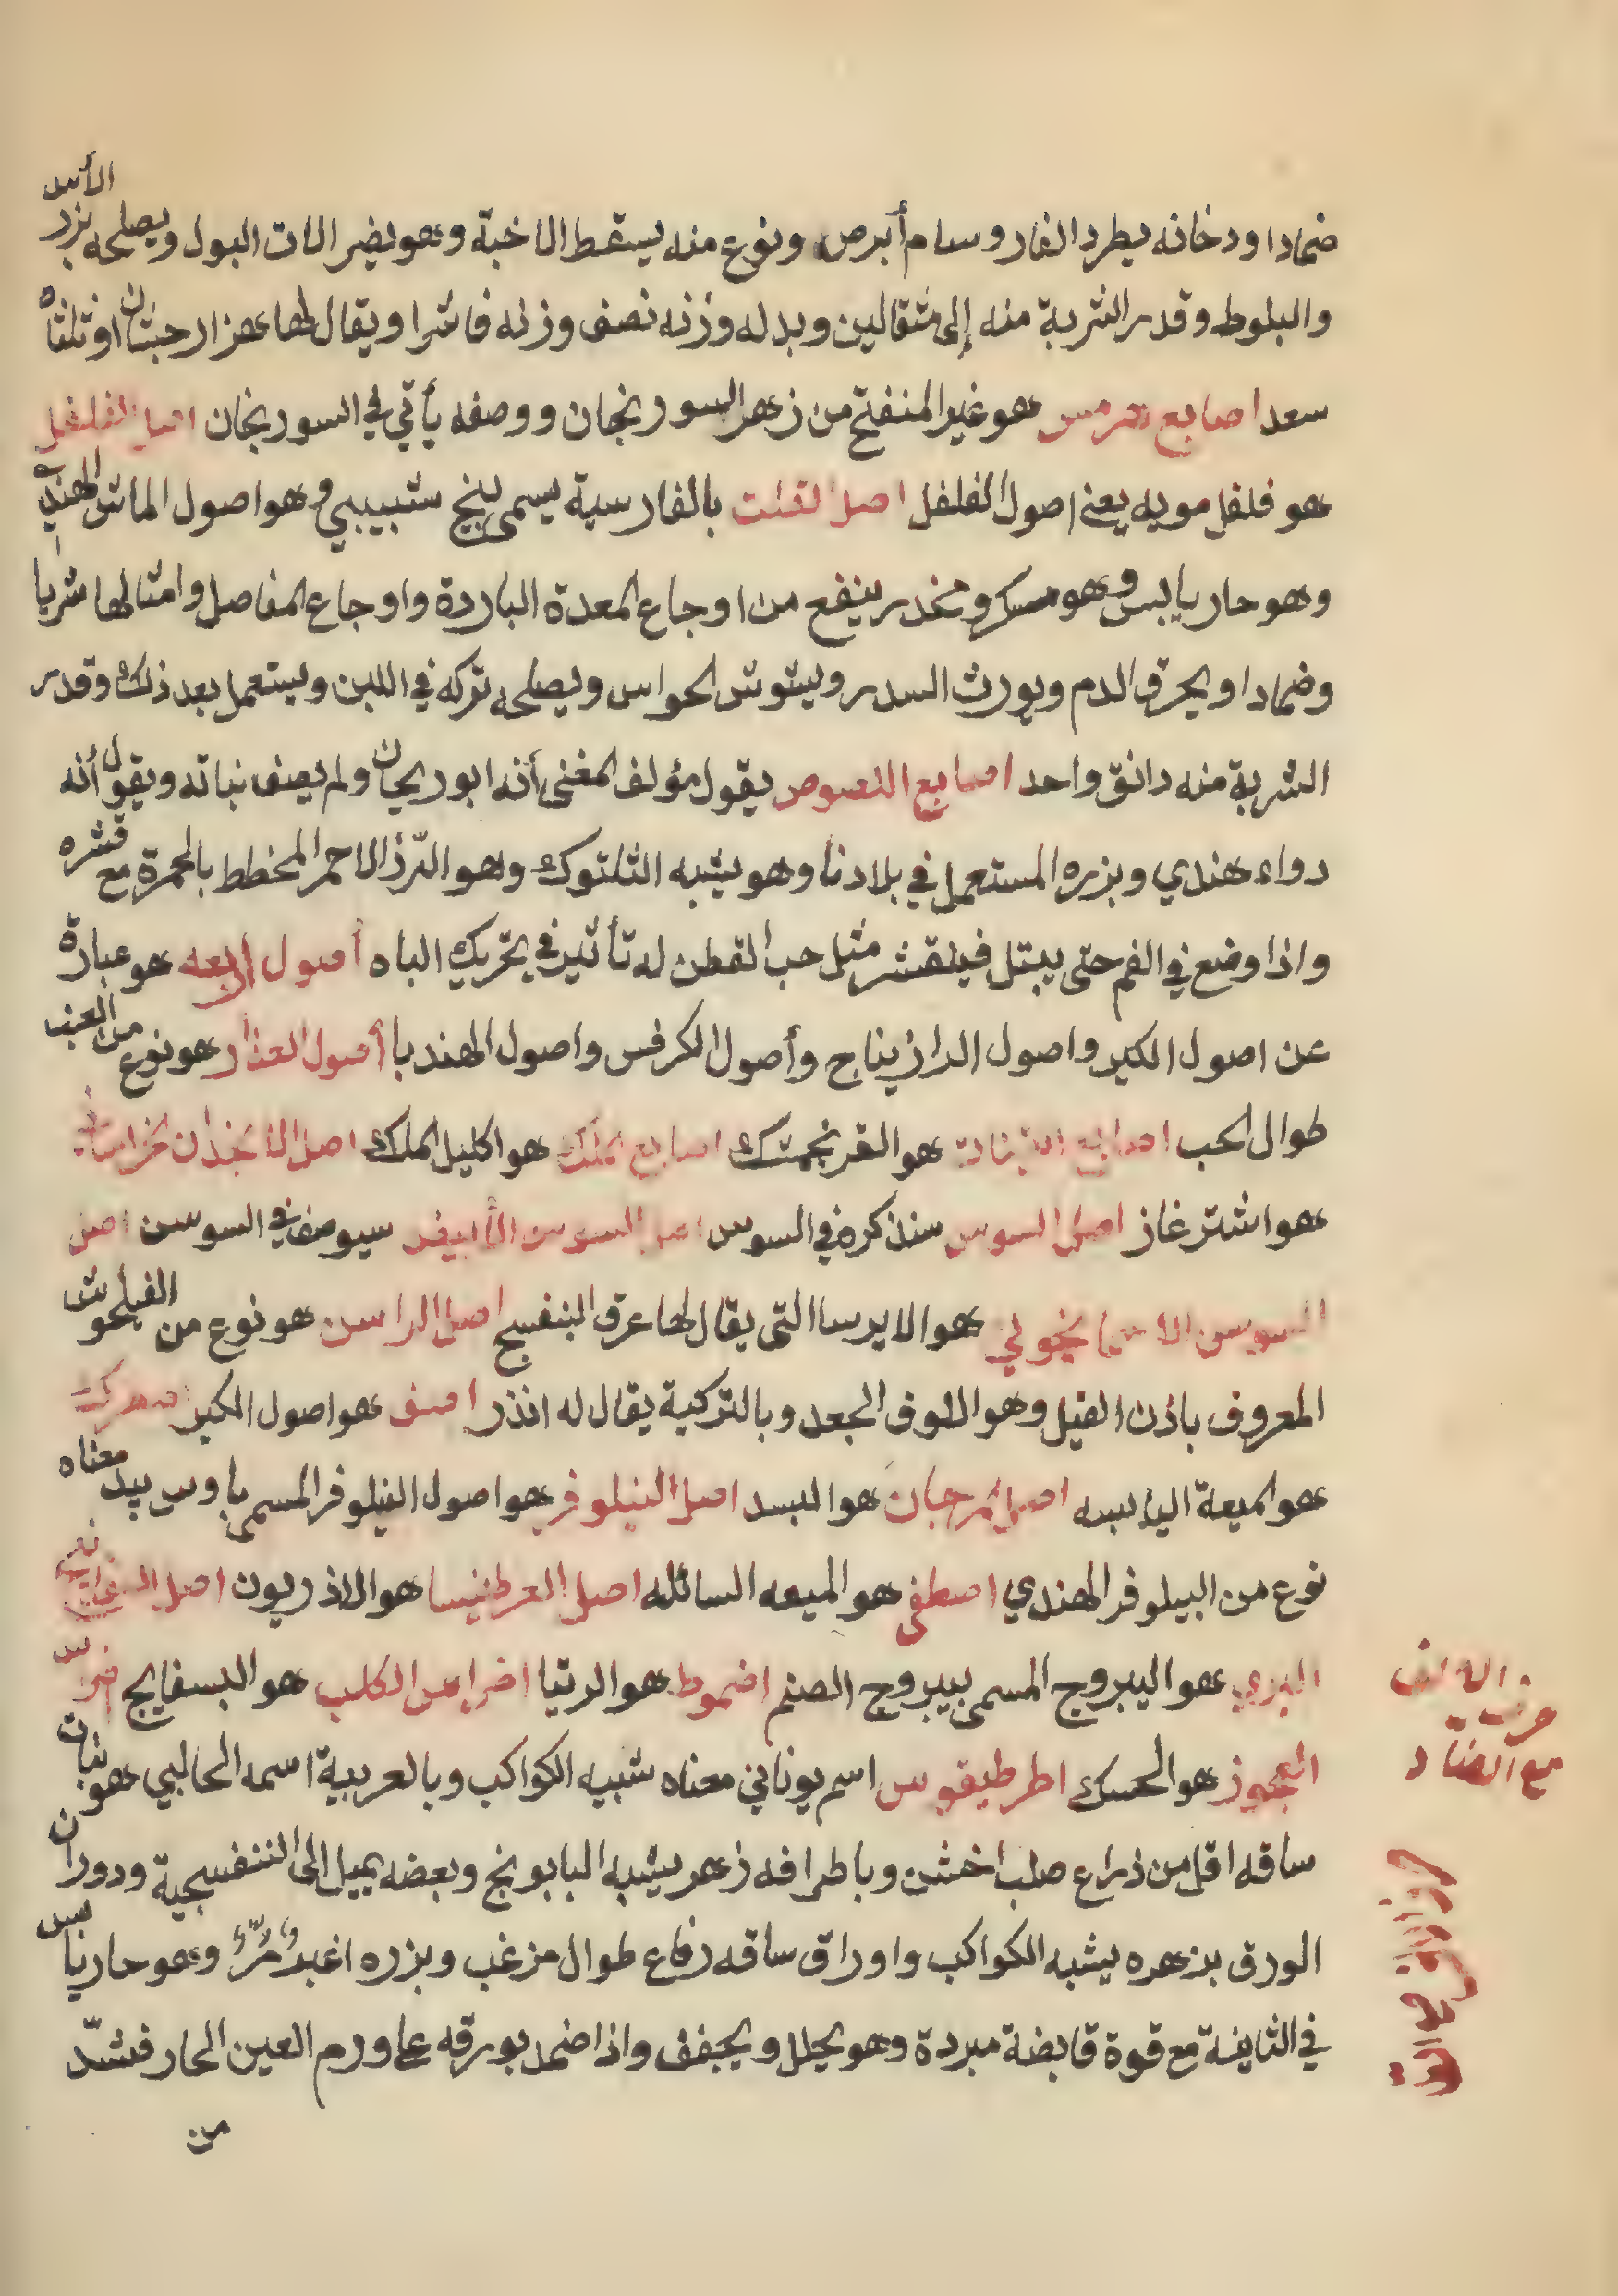 ضمادا ودخانه يطرد الفار وسام أبرص ونوع منه يسقط الاخبة وهو يضر الات البول ويصلحه بزر الأس
والبلوط وقدر الشربة منه إلى مثقالين وبدله وزنه نصف وزنه فاشرا ويقال لها هزار حبتان او ثلثاه
سعد اصابع هرمس هو غير المنفتح من زهر السورنجان ووصفه يأتي في السورنجان اصل الفلفل
هو فلفل مويه يعني اصول الفلفل اصل القلت بالفارسية يسمى بنج شبيبي وهو اصول الماش الهندي
وهو حار يابس وهو مسكر ومخدر ينفع من اوجاع المعدة الباردة واوجاع المفاصل وامثالها شربا
وضمادا ويحرق الدم ويورث السدر ويشوش الحواس ويصلحه تركه في اللبن ويستعمل بعد ذلك وقدر
الشربة منه دانق واحد اصابع اللصوص يقول مؤلف المغنى أنه ابو ريحان ولم يصف نباته ويقول أنه
دواء هندي وبزره المستعمل في بلادنا وهو يشبه الثلتوك وهو الرّز الاحمر المخطط بالحمرة مع قشره
واذا وضع في الفم حتى يبتل فيتقشر مثل حب القطن له تأثير في تحريك الباه أصول اربعه هو عبارة
عن اصول الكبر واصول الرازيناج وأصول الكرفس واصول الهندبا أصول العذار هو نوع من العنب
طوال الحب اصابع القينات هو الفرنجمشك اصابع الملك هو اكليل الملك اصل الانجذان الخراساني
هو اشترغاز اصل السوس سنذكره في السوس اصل السوسن الأبيض سيوصف في السوسن اصل
السوسن الاسمانجوني هو الايرسا التى يقال لها عرق البنفسج اصل الراسن هو نوع من الفيلجوش
المعروف باذن الفيل وهو اللوف الجعد وبالتركية يقال له انذز اصف هو اصول الكبر
هو الميعة اليابسه اصل المرجان هو البسد اصل النيلوفر هو اصول النيلوفر المسمى باوس بيد معناه
نوع من البيلوفر الهندي اصطفى هو الميعه السائله اصل العرطنيسا هو الاذريون اصل
البري هو اليبروج المسمى بيبروج الصنم اضموط هو الرتيا اضراس الكلب هو البسفايج ضرس
العجوز هو الحسك اطرطيقوس اسم يوناني معناه شبيه الكواكب وبالعربية اسمه الحالبي هو نبات
ساقه اقل من ذراع صلب اخشن وباطرافه زهر يشبه البابونج وبعضه يميل الى الننفسجية ودوران
الورق بزهره يشبه الكواكب واوراق ساقه رفاع طوال مزغب وبزره اغبر ومرّ وهو حار يابس
في الثانية مع قوة قابضة مبردة وهو يحلل ويجفف واذا ضمد بورقه على ورم العين الحار فشدّ
من
حرف الالف
مع الضاد